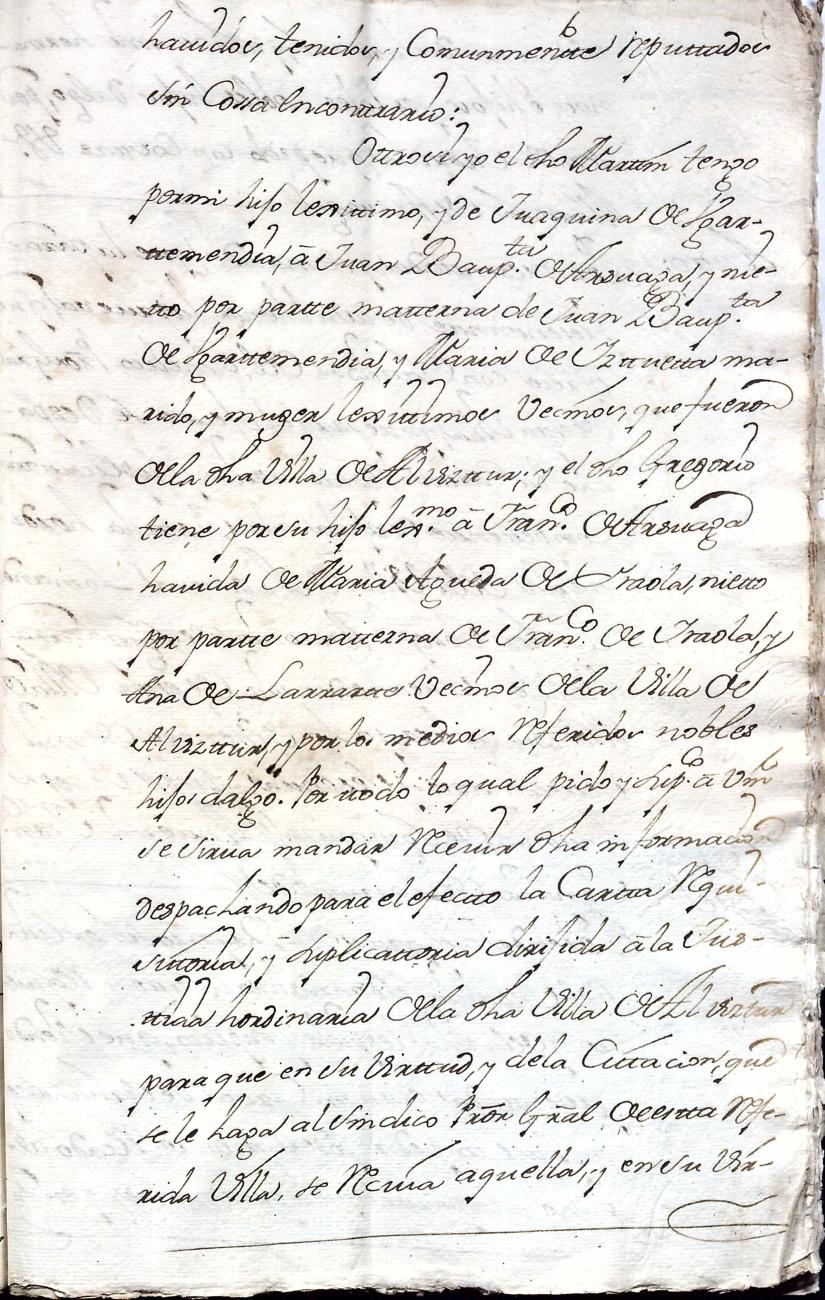 hauidos, tenidos, y Comunmentte rreputtados
sin Cossa en conttrario:
Ottrosi yo el dho Marttin tengo
por mi hijo lexittimo, y de Juaquina de Ygar-
ttemendia, â Juan Baup.ta de Arsuaga, y nie-
tto por partte matterna de Juan Baup.ta
de Ygarttemendia, y Maria de Yzttuetta ma-
rido, y muger lexittimos Vecinos, que fueron
de la dha Villa de Alvizttur; y el dho Gregorio
tiene por su hijo lex.mo â Fran.co de Arsuaga
hauida de Maria Agueda de Yraola, nietto
por partte matterna de Fran.co de Yraola, y
Ana de Larrartte Vecinos de la Villa de
Alvizttur, y por los medios rreferidos nobles
hijos dalgo. Por ttodo lo qual pido y Sup.co â Vm
se sirua mandar rreceuir dha informacion
despachando para el efectto la Cartta rrequi-
sittoria, y Suplicattoria dirijida â la Jus-
tticia hordinaria de la dha Villa de Alvizttur
para que en su virttud, y de la Cittacion, que
se le haga al sindico Pror Gral de estta rrefe-
rida Villa, se rreciua aquella, y en su vir-